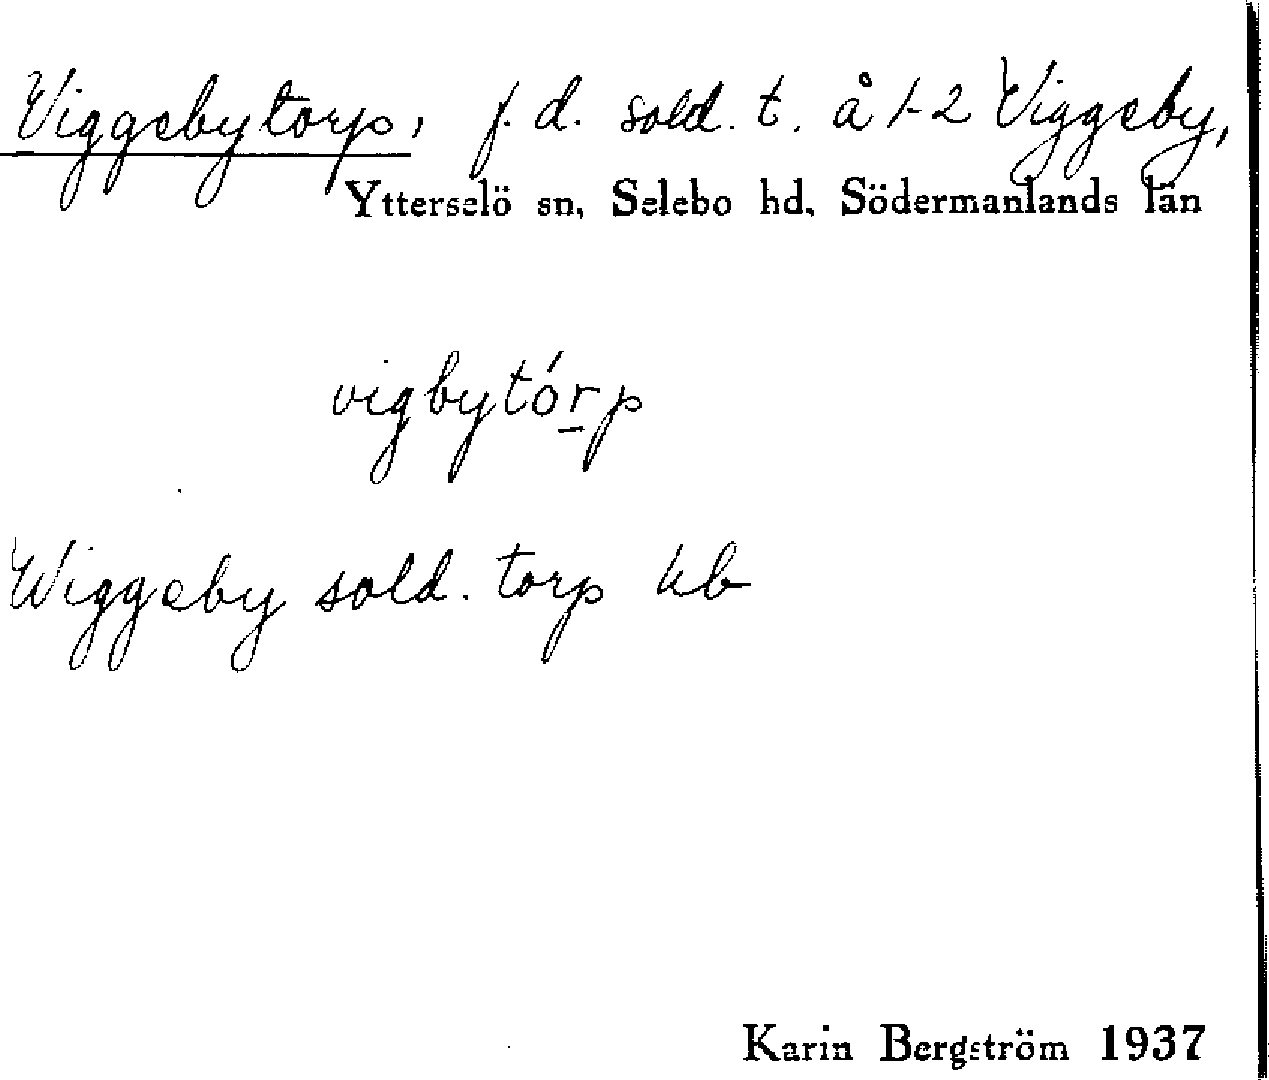 Viggebytorp, f. d. sold. t. å 1-2 Viggeby,
Ytterselö sn, Selebo hd, Södermanlands län
vigbytórp
Wiggeby sold. torp kb
Karin Bergström 1937